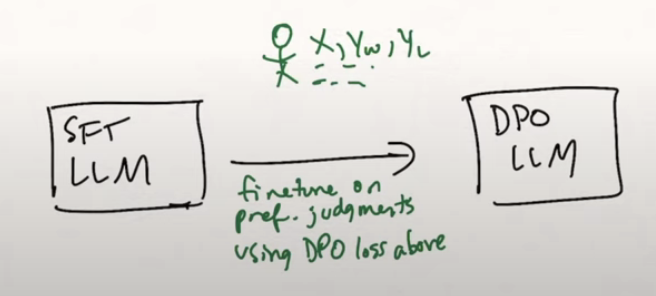 x, yw, yL
SFT
LLM
finetune on
pref. judgments
using DPO loss above
DPO
LLM